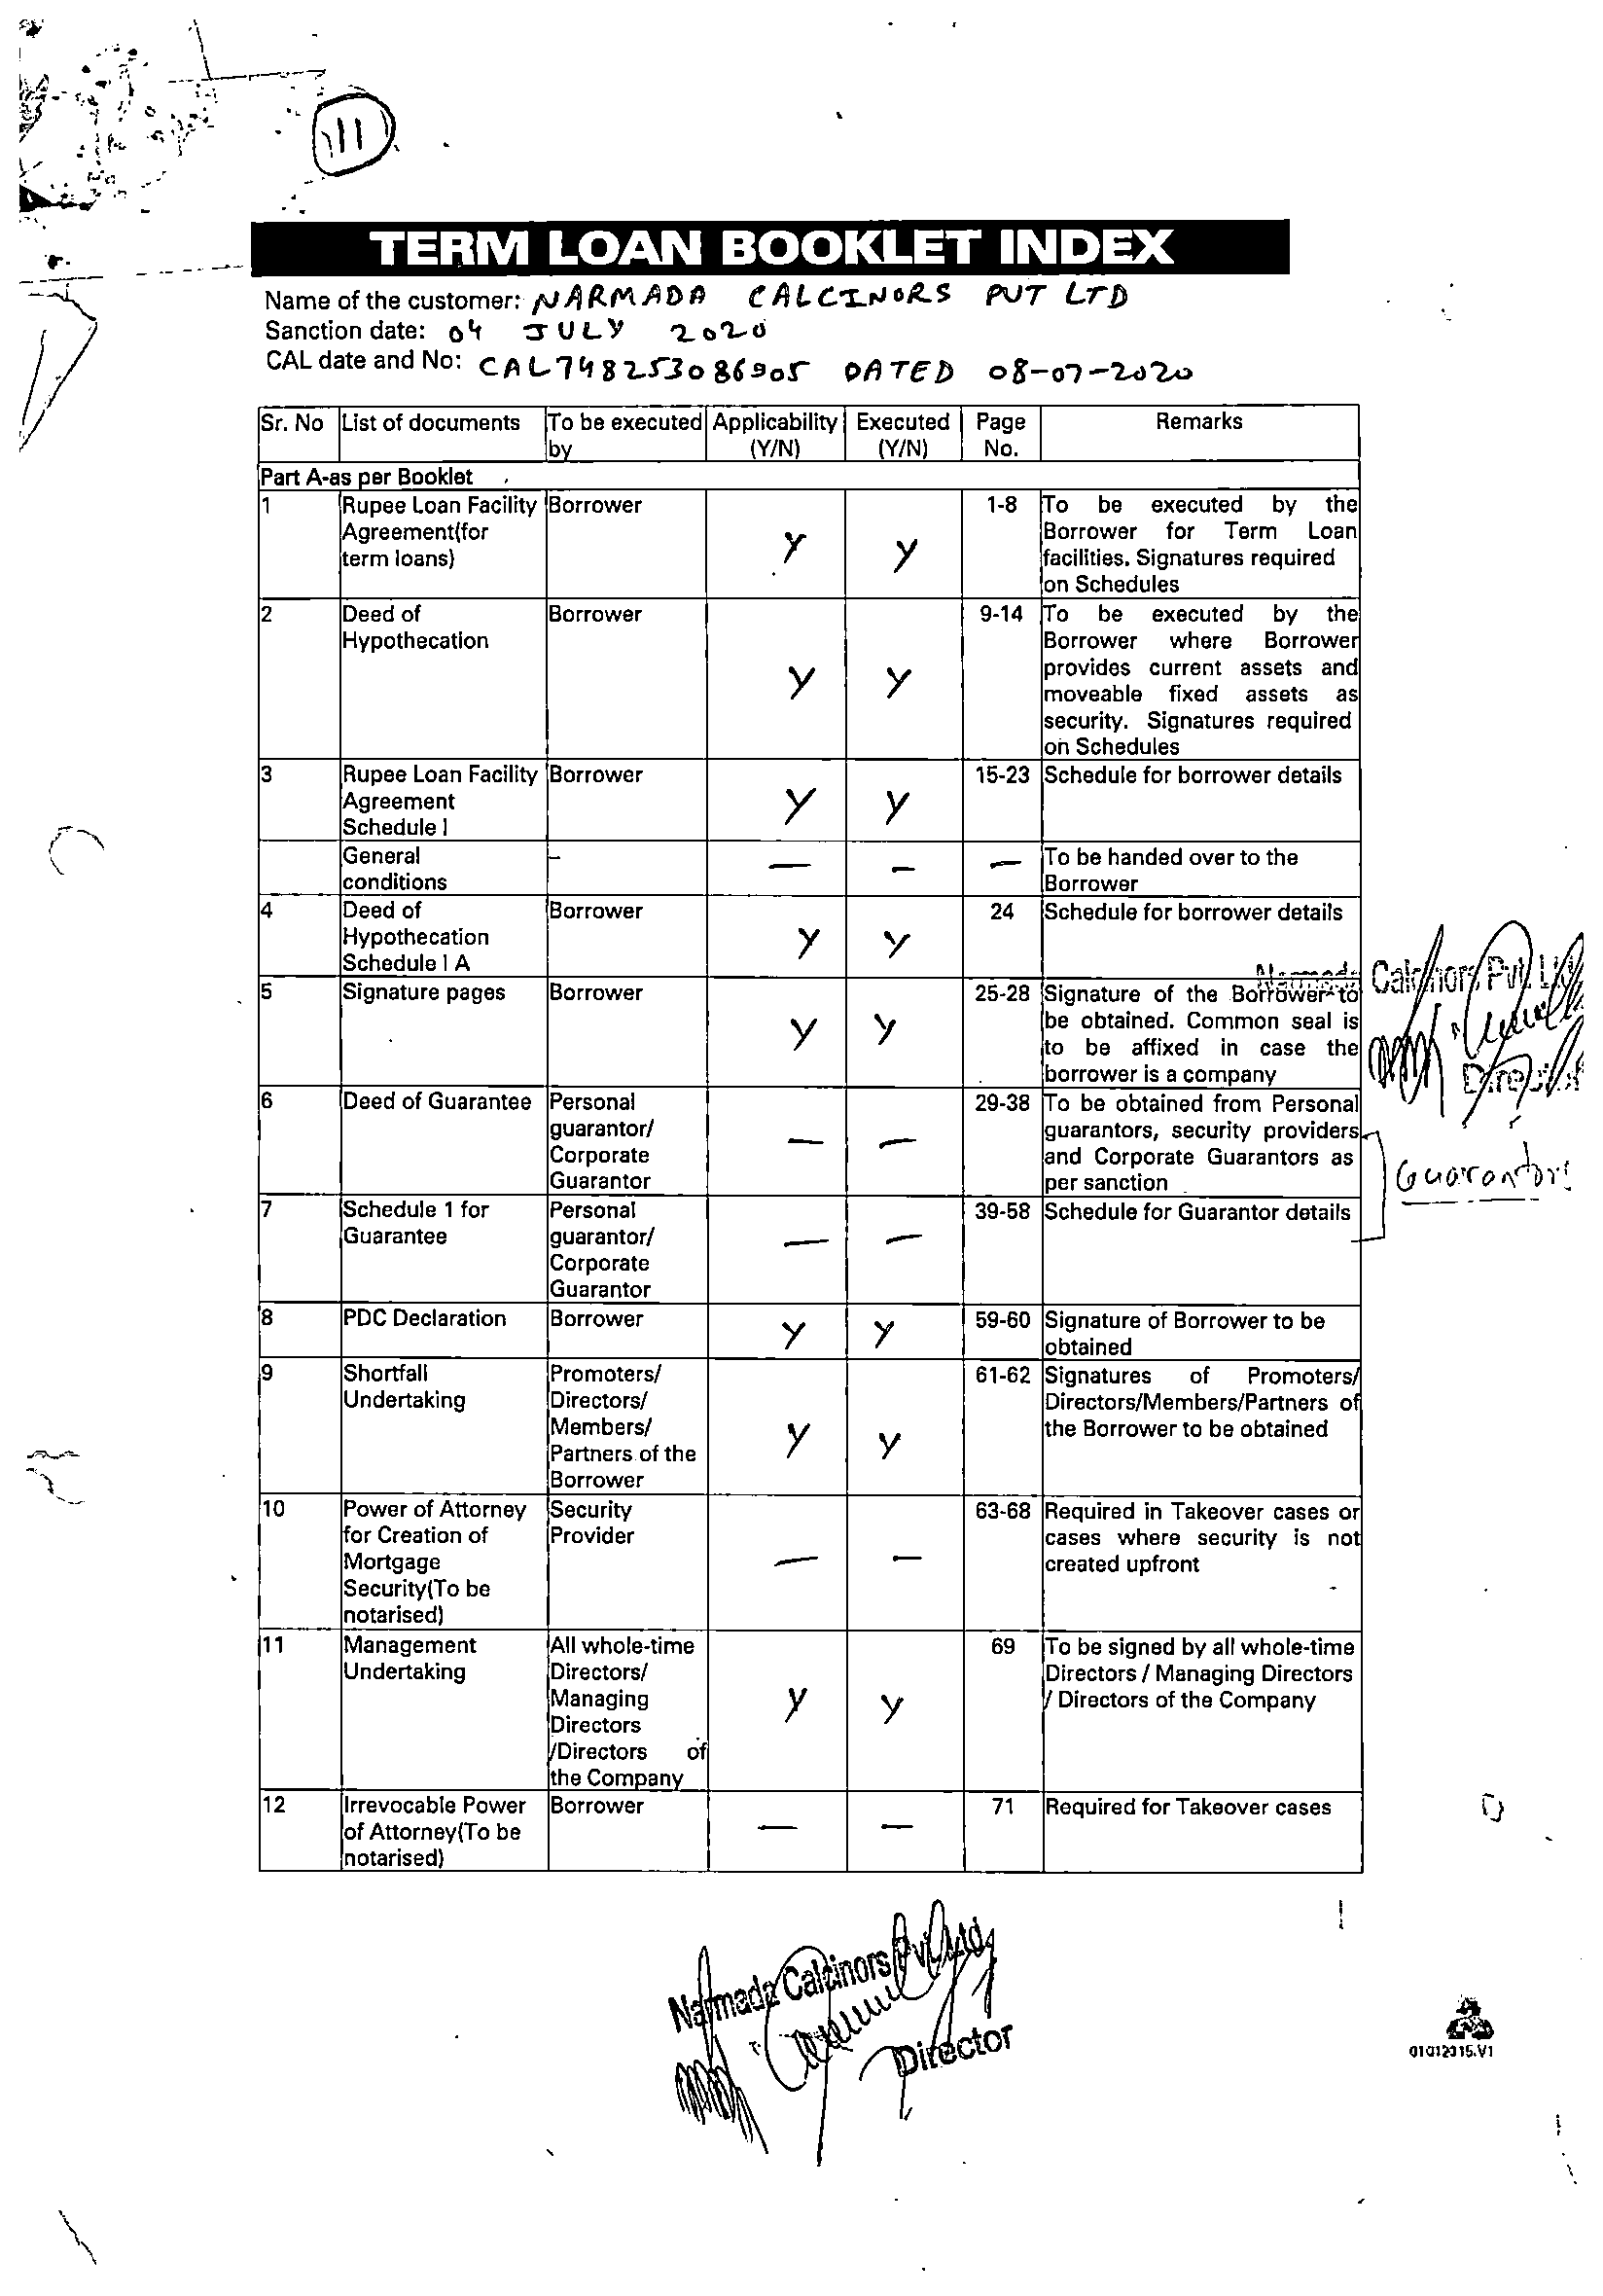 111
TERM LOAN BOOKLET INDEX
Name of the customer: NARMADA CALCINORS PVT LTD
Sanction date: 04 JULY 2020
CAL date and No: CAL748253086905 DATED 08-07-2020
Sr. No List of documents To be executed by Applicability (Y/N) Executed (Y/N) Page No. Remarks
Part A-as per Booklet
1 Rupee Loan Facility Agreement(for term loans) Borrower Y Y 1-8 To be executed by the Borrower for Term Loan facilities. Signatures required on Schedules
2 Deed of Hypothecation Borrower Y Y 9-14 To be executed by the Borrower where Borrower provides current assets and moveable fixed assets as security. Signatures required on Schedules
3 Rupee Loan Facility Agreement Schedule I Borrower Y Y 15-23 Schedule for borrower details
General conditions – — – — To be handed over to the Borrower
4 Deed of Hypothecation Schedule I A Borrower Y Y 24 Schedule for borrower details
Narmada Calcinors Pvt. Ltd.
5 Signature pages Borrower Y Y 25-28 Signature of the Borrower to be obtained. Common seal is to be affixed in case the borrower is a company
Director
6 Deed of Guarantee Personal guarantor/ Corporate Guarantor — — 29-38 To be obtained from Personal guarantors, security providers and Corporate Guarantors as per sanction
Guarantors
7 Schedule 1 for Guarantee Personal guarantor/ Corporate Guarantor — — 39-58 Schedule for Guarantor details
8 PDC Declaration Borrower Y Y 59-60 Signature of Borrower to be obtained
9 Shortfall Undertaking Promoters/ Directors/ Members/ Partners of the Borrower Y Y 61-62 Signatures of Promoters/ Directors/Members/Partners of the Borrower to be obtained
10 Power of Attorney for Creation of Mortgage Security(To be notarised) Security Provider — — 63-68 Required in Takeover cases or cases where security is not created upfront
11 Management Undertaking All whole-time Directors/ Managing Directors /Directors of the Company Y Y 69 To be signed by all whole-time Directors / Managing Directors / Directors of the Company
12 Irrevocable Power of Attorney(To be notarised) Borrower — — 71 Required for Takeover cases
Narmada Calcinors Pvt. Ltd.
Director
01012015.V1